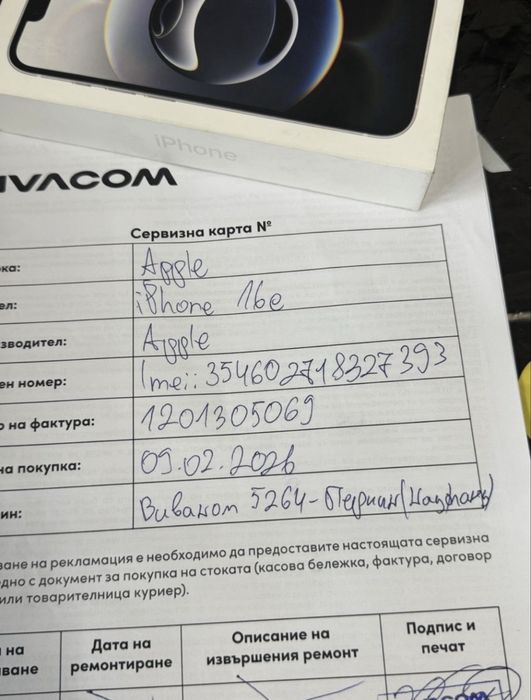 iPhone
IVACOM
Сервизна карта №
ка: Apple
ел: iPhone 16e
зводител: Apple
ен номер: Imei: 354602718327393
на фактура: 1201305069
на покупка: 09.02.2026
ин: Виваком 5264-
ване на рекламация е необходимо да предоставите настоящата сервизна
дно с документ за покупка на стоката (касова бележка, фактура, договор
или товарителница куриер).
на
ване
Дата на
ремонтиране
Описание на
извършения ремонт
Подпис и
печат